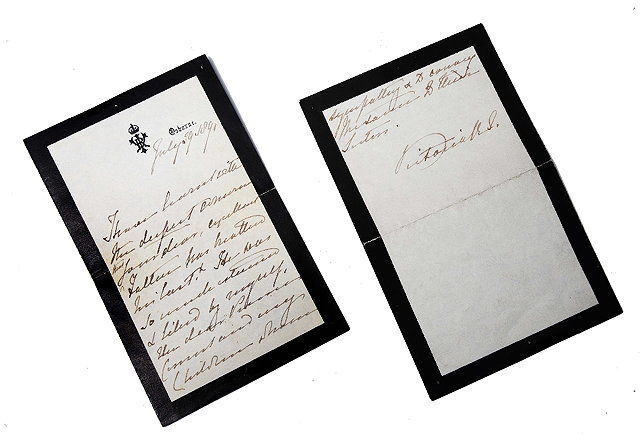 Osborne.
July 29. 1891
I have heard with
the deepest concern
that your dear, excellent
Father has breathed
his last & He was
so much esteemed
& liked by myself,
the dear Prince
Consort and my
Children
sympathy & to convey
the same to their
Sisters.
Victoria R. I.